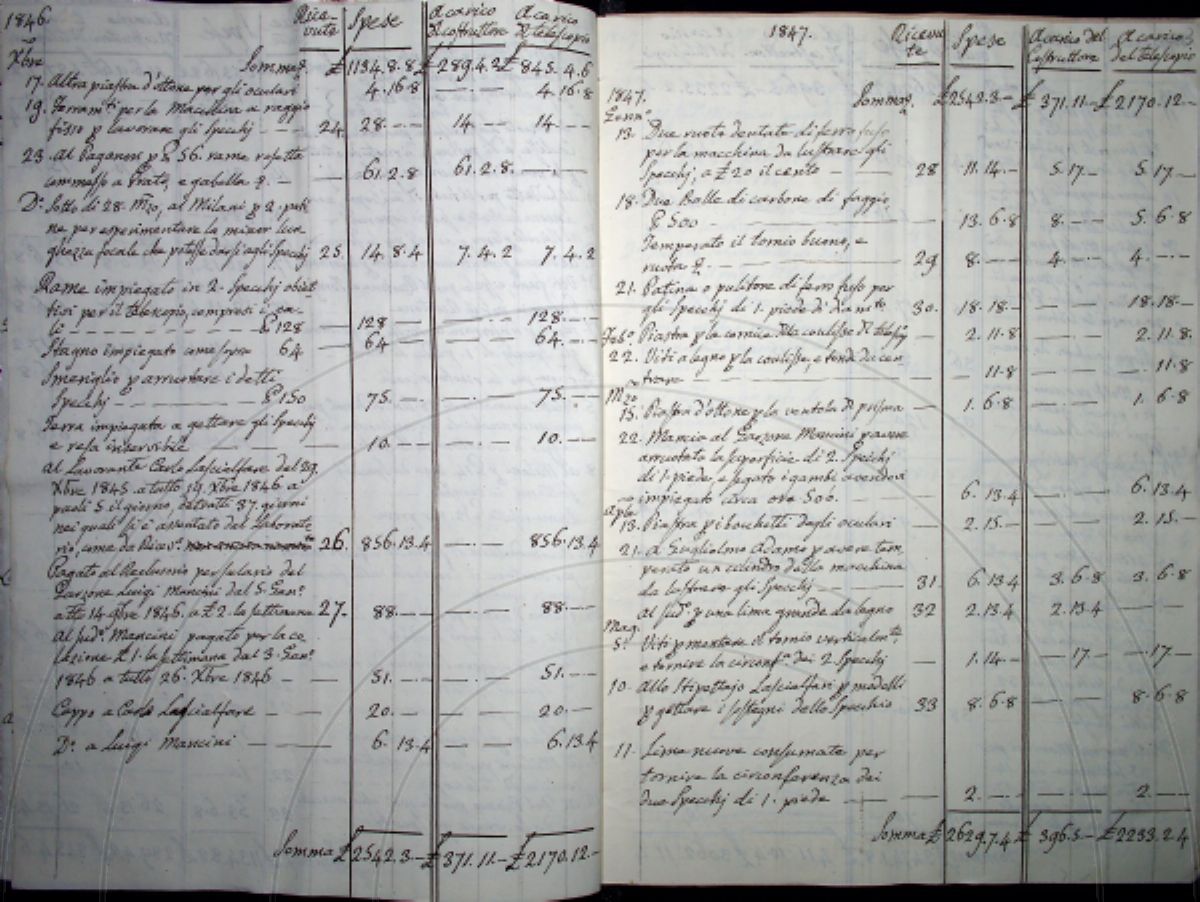 1846.
Rice-
vute
Spese
A carico
del costruttore
A carico
del telescopio
Xbre
Somma £ 1134.8.8 £ 289.4.2 £ 845.4.6
17. Altra piastra d'ottone per gli oculari 4.16.8 4.16.8
19. per la Macchina a raggio
fisso p lavorare gli Specchj 24. 28. 14. 14.
23. Al Paganori p £ 56. rame rosetta
commesso a Prato, e gabella 61.2.8 61.2.8.
Do. Sotto di 28. Mzo, al Milani p 2.
ne per esperimentare la minor lun
ghezza focale che potesse darsi agli Specchj 25. 14.8.4 7.4.2 7.4.2
Rame impiegato in 2. Specchj obiet-
tivi per il telescopio, compresi i
128 128 128.
Stagno impiegato come sopra 64. 64 64.
Smeriglio p arruotare i detti
Specchj 150 75. 75.
Terra impiegata a gettare gli Specchj
e resa inservibile 10. 10.
Al Lavorante Carlo Lascialfare dal 29.
Xbre 1845. a tutto 19. Xbre 1846. a
paoli 5 il giorno, detratti 37. giorni
nei quali si è assentato dal Laborato
rio, come da Ricev. 26. 856.13.4 856.13.4
Pagato al Reclusorio per salario del
Garzone Luigi Mancini dal 5. Gen.
a tto 14. 9bre 1846. a £ 2. la settimana 27. 88. 88.
Al sud. Mancini pagato per la co
lezione £ 1. la settimana dal 3. Gen.
1846 a tutto 26. Xbre 1846 51. 51.
Ceppo a Carlo Lascialfare 20. 20.
Do. a Luigi Mancini 6.13.4 6.13.4
Somma £ 2542.3 £ 371.11 £ 2170.12.
1847.
Ricevu
te
Spese
A carico del
Costruttore
A carico
del telescopio
1847. Somma £ 2542.3 £ 371.11 £ 2170.12
Genn.
13. Due ruote dentate di ferro fuso
per la macchina da lustrare gli
Specchj, a £ 20 il cento 28 11.14. 5.17. 5.17.
18. Due Balle di carbone di faggio,
500 13.6.8 8. 5.6.8
Temperato il tornio buono, e
ruota 29 8. 4. 4.
21. Patina o pulitore di ferro fuso per
gli Specchj di 1. piede di diam. 30. 18.18. 18.18
Feb. Piastra p la cornice della coulisse del telesc. 2.11.8 2.11.8.
22. Viti a legno p la coulisse, e tonde da cen
trare 11.8 11.8
Mzo
15. Piastra d'ottone p la ventola di prisma 1.6.8 1.6.8
22. Mancia al Garzone Mancini p avere
arruotato la superficie di 2. Specchj
di 1. piede, e segato i gambi avendovi
impiegato circa ore 500. 6.13.4 6.13.4
Aple
13. Piastra p i bocchetti degli oculari 2.15. 2.15.
21. A Guglielmo Adamo p avere tem
perato un cilindro della macchina
da lustrare gli Specchj 31 6.13.4 3.6.8 3.6.8
Al sud. p una lima grande da legno 32 2.13.4 2.13.4
Mag.
5. Viti p montare il tornio verticalmte
e tornire la circonf. dei 2. Specchj 1.14. 17 17
10. Allo Stipettajo Lascialfari p modelli
p gettare i sostegni dello Specchio 33 8.6.8 8.6.8
11. Lime nuove consumate per
tornire la circonferenza dei
due Specchj di 1. piede 2. 2.
Somma £ 2629.7.4 £ 396.5 £ 2233.2.4